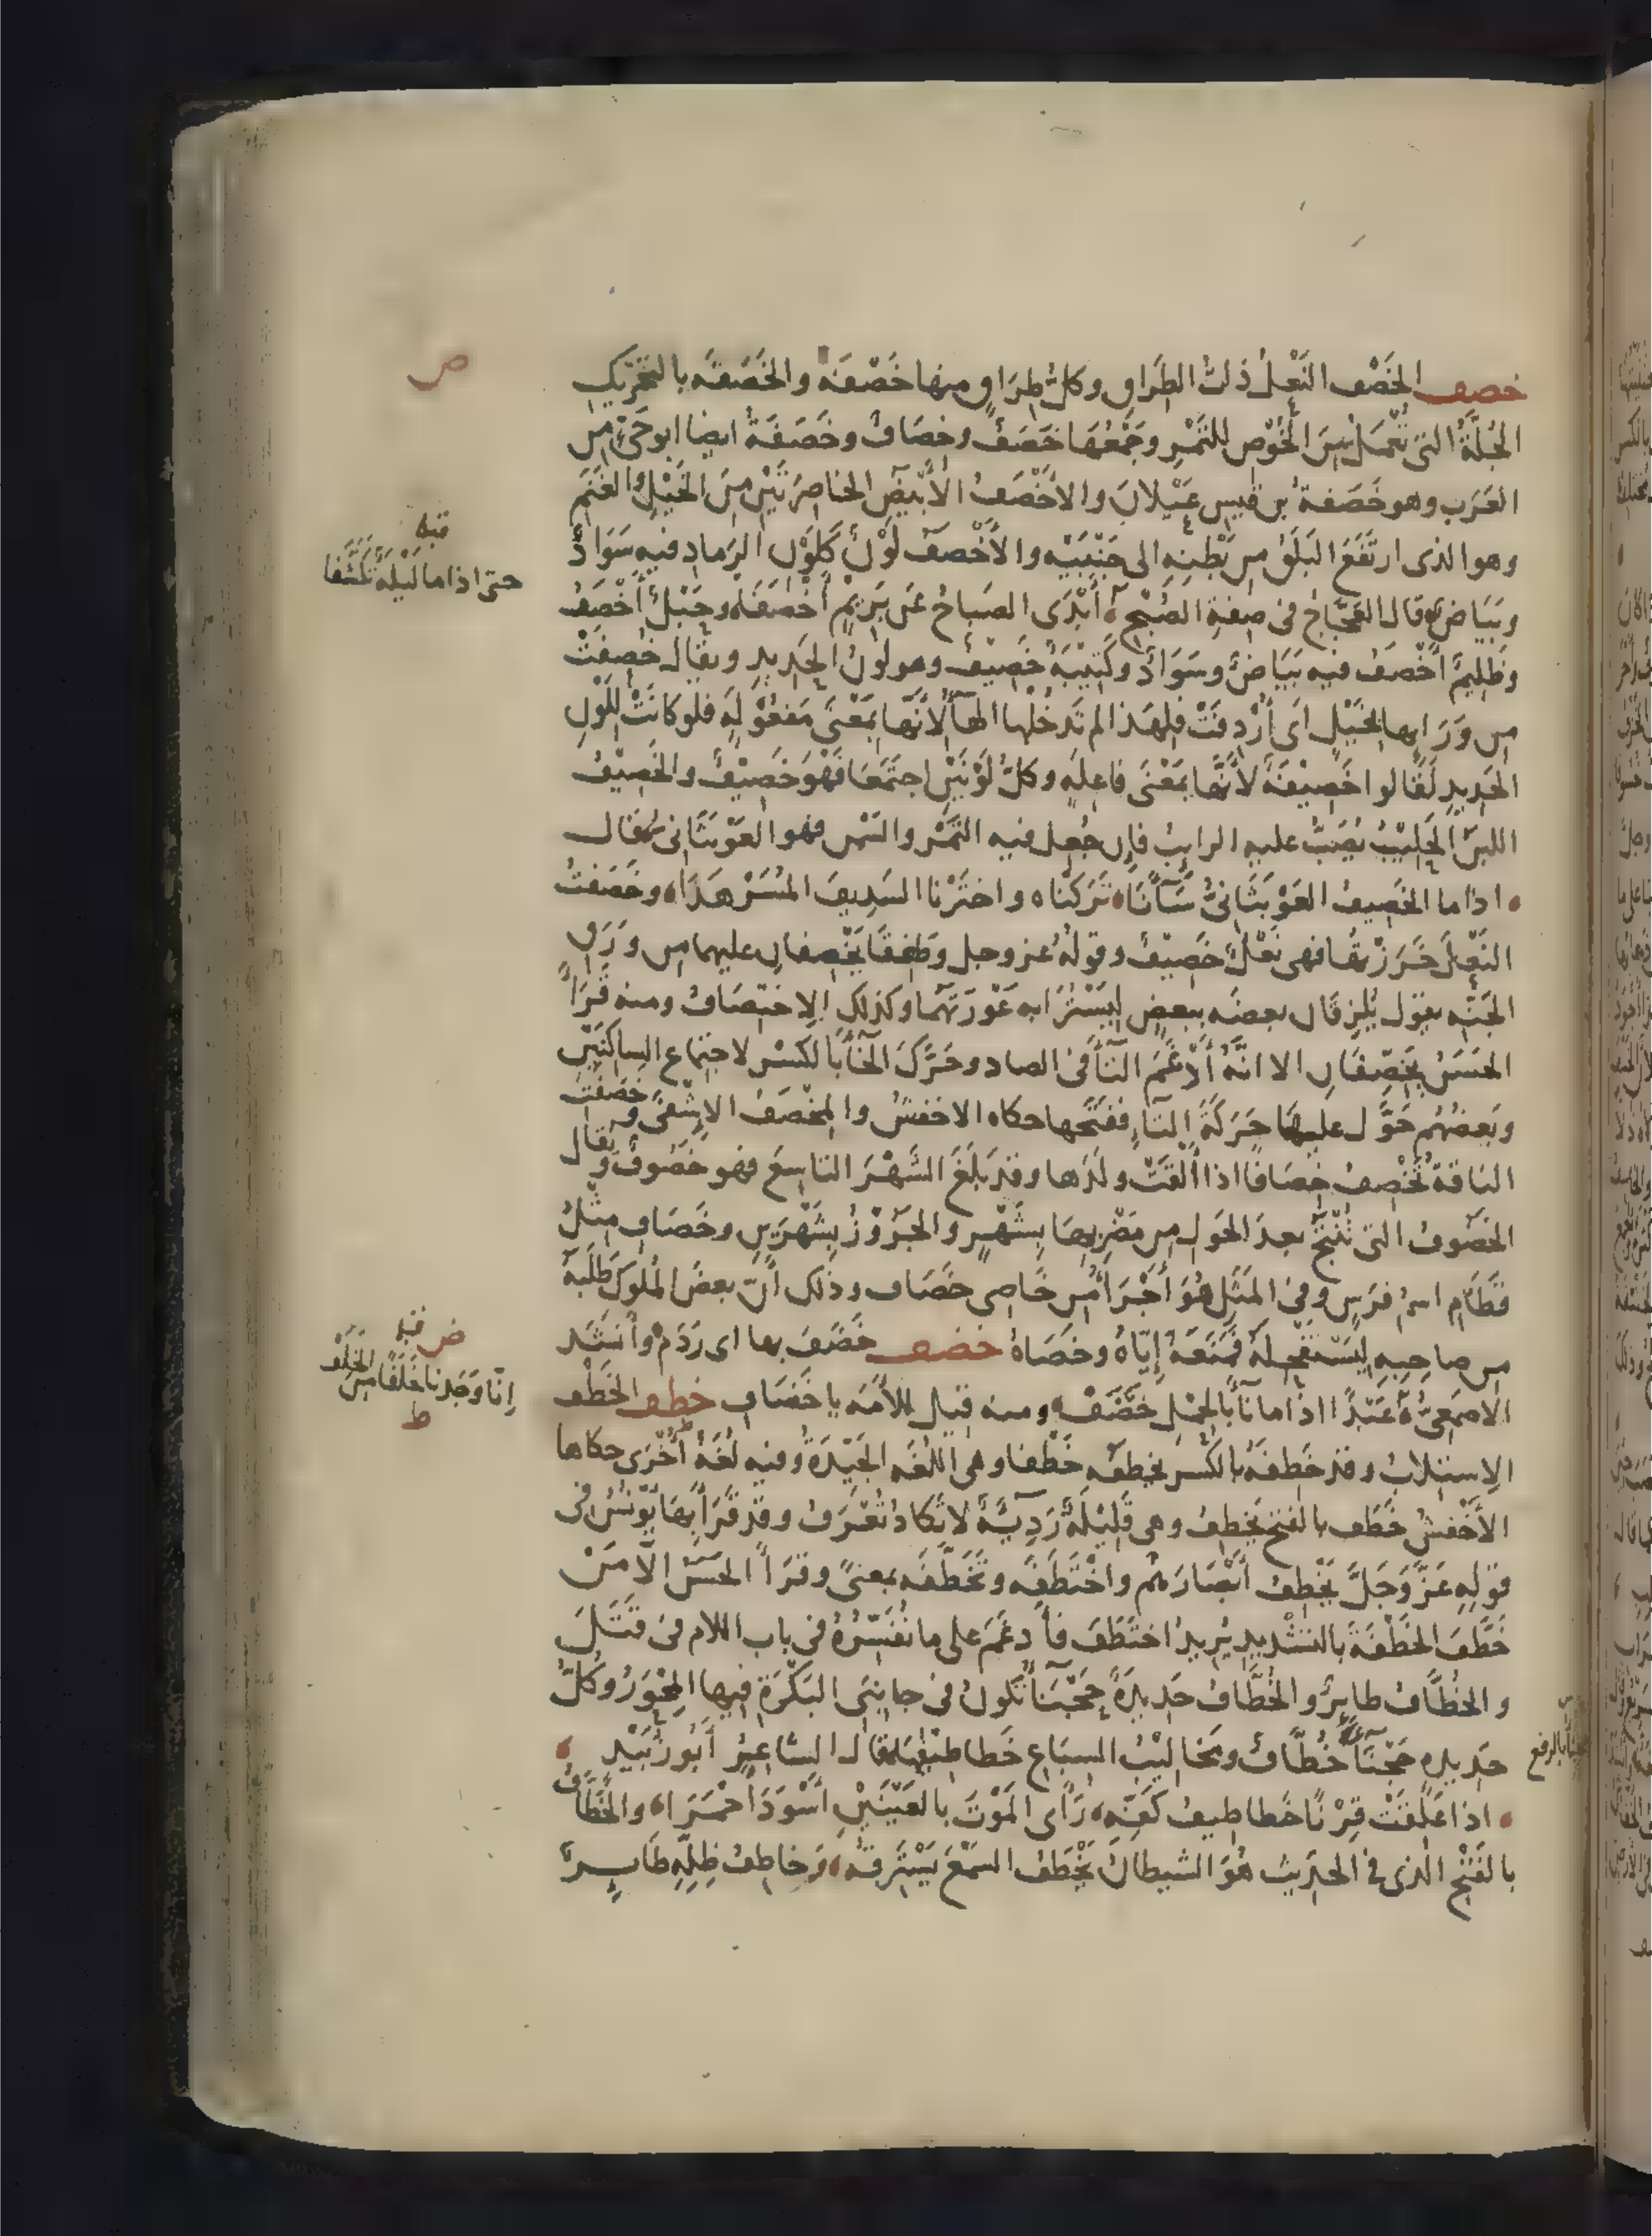 خصف الخَصْف النَّعْل ذات الطِّرَاق وكلّ طِرَاق منها خَصْفَة والخَصَفَه بالتحريك
الجُلَّةُ التى تُعْمَل مِنَ الخُوْصِ للتَّمْرِ وجَمْعُهَا خَصَفٌ وخِصَافٌ وخَصَفَةُ ايضا ابو حَىٍّ من
العَرَب وهو خَصَفَةُ بن قيسِ عَيْلانَ والأَخْصَفُ الأَبْيَضُ الخاصِرَتَيْنِ مِنَ الخَيْلِ والغَنَمِ
وهو الذى ارتَفَعَ البَلَقُ من بَطْنِهِ الى جَنْبَيْهِ والأَخْصَفُ لَوْنٌ كَلَوْنِ الرَّمادِ فيه سَوَادٌ
وبَيَاضٌ وقال العَجَّاجُ فى صِفَةِ الصُّبْحِ أَبْدَى الصَباحُ عَن بَرِيْمٍ أَخْصَفَا وحَبْلٌ أَخْصَفُ
وظَلِيمٌ أَخْصَفُ فيه بَيَاضٌ وسَوَادٌ وكَتِيْبَةٌ خَصِيْفٌ وهو لَوْنُ الحَدِيدِ ويقال خُصِفَتْ
من وَرَايها بخَيْلٍ اى أُرْدِفَتْ فلهذا لم تَدخُلْها الهآءُ لأَنّها بمَعْنَى مَفعُوْلَةٍ فلو كانَتْ لِلَوْنِ
الحَدِيدِ لَقَالوا خَصِيْفَةٌ لأنَّها بمَعْنَى فاعِلَهٍ وكلُّ لَوْنَيْنِ اجتَمَعَا فَهْوَ خَصِيْفٌ والخَصِيْفُ
اللبَنُ الحَلِيْبُ يُصَبُّ عليه الرايبُ فإن جُعِلَ فيه التَّمْر والسَّمن فهو العَوْبَثَانىّ قال
اذا ما الخَصِيفُ العَوْبَثَانىُّ سَآنَا تَرَكْنَاه واخْتَرْنا السَدِيفَ المُسَرْهَدَا وخَصَفتُ
النَّعْلَ خَرَزْتُها فهى نَعْلٌ خَصِيْفٌ وقولُهُ عز وجل وطَفِقَا يَخْصِفان عليهما من وَرَقِ
الجَنَّه يقول يُلزِقان بعضَه ببعضٍ لِيَسْتُرَا به عَوْرَتَهُمَا وكذلك الاِختِصَافُ ومنه قَرَأَ
الحَسَنُ يَخِصِّفَانِ الا انّهُ أَدْغَمَ التآءَ فى الصاد وحَرَّكَ الخآءَ بالكسْرِ لاجتِماعِ السَاكِنَيْنِ
وبَعضُهُم حَوَّلَ عليها حَرَكَةَ التآءِ ففَتَحَها حكاه الاخفشُ والمِخْصَفُ الاِشْفَى وخَصَفَتِ
الناقةُ تَخْصِفُ خِصَافًا اذا أَلْقَتْ ولَدَها وقد بَلَغَ الشَّهْرَ التاسِعَ فهو خَصُوفٌ ويُقال
الخَصُوفُ التى تُنْتَجُ بعدَ الحَولِ من مَضْرِبِهَا بِشَهْرٍ والجَرُوْرُ بِشَهْرَيْنِ وخَصَافِ مِثْلُ
قَطَامِ اسمُ فَرَسٍ وفى المَثَلِ هُوَ أَجْرَأُ مِن خَاصِى خَصَافِ وذلك أَنّ بعضَ المُلوكِ طَلَبَهُ
من صاحِبِهِ لِيَسْتَفْحِلَهُ فَمَنَعَهُ إيّاهُ وخَصَاهُ خضف خَضَفَ بها اى رَدَمَ وأَنشَد
الاصمعىُّ عَبْدًا اذا ما نَآءَ بالحِمْلِ خَضَفْ ومنه قيل للأَمَه يا خَضَافِ خطف الخَطْف
الاِستِلابُ وقد خَطِفَهُ بالكَسْرِ يَخطَفُه خَطْفا وهى اللُغَه الجَيّدَةُ وفيه لُغَةٌ أُخْرَى حكاها
الأَخْفشُ خَطَف بالفتح يَخطِفُ وهى قَلِيْلَةٌ رَدِيَّةٌ لا تَكادُ تُعْرَفُ وقد قَرَأَ بِهَا يُوْنُسُ فى
قولِهِ عَزَّ وَجَلَّ يَخْطِفُ أَبْصَارَهُم واخْتَطَفَه وتَخَطَّفَه بمعنىً وقَرَأَ الحَسَن الّا مَنْ
خَطَّفَ الخَطْفَةَ بالتشْدِيدِ يُرِيدُ اختَطَفَ فأَدغَمَ على ما نُفَسِّرُهُ فى باب اللام فى قَتَّلَ
والخُطَّافُ طايِرٌ والخُطَّافُ حَدِيدَةٌ حَجْنَآءُ تكونُ فى جانِبَى البَكْرَةِ فيها المِحْوَرُ وكُلُّ
حَدِيدهٍ حَجْنَآءَ خُطَّافٌ ومَخَالِيْبُ السِبَاعِ خَطاطيفُها قال الشاعِرُ أَبُو زُبَيْدٍ
اذا عَلِقَتْ قِرْنًا خَطاطيفُ كَفِّهِ رَأَى المَوْتَ بالعَيْنَيْنِ أَسْوَدَ أَحْمَرَا والخَطَّافُ
بالفَتْح الذى فى الحدِيث هُوَ الشيطانُ يَخْطَفُ السمعَ يَسْتَرِقُه وخاطِفُ ظِلِّهِ طَايِرٌ
ص
قبله
حتى اذا ما لَيْلُهُ تَكَشَّفا
ض قبله
إنّا وَجَدنا خَلَفًا من الخَلَف
ط
بالرفع